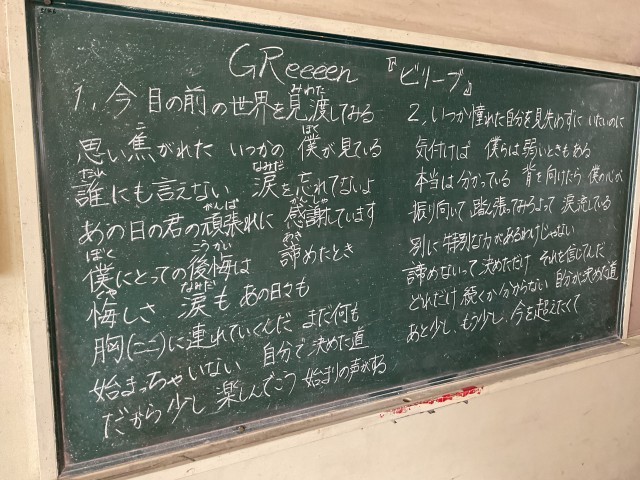 GReeeen 『ビリーブ』
1, 今 目の前の世界を見渡(みわた)してみる
思い焦(こ)がれた いつかの 僕(ぼく)が見ている
誰(だれ)にも言えない 涙(なみだ)を忘れてないよ
あの日の君の頑張(がんば)れに 感謝(かんしゃ)しています
僕(ぼく)にとっての後悔(こうかい)は 諦(あきら)めたとき
悔(くや)しさ 涙(なみだ)も あの日々も
胸(ここ)に連れていくんだ まだ何も
始まっちゃいない 自分で決めた道
だから少し 楽しんでこう 始まりの声がする
2, いつか憧れた自分を見失わずに いたいのに
気付けば 僕らは弱いときもある
本当は分かっている 背を向けたら 僕の心が
振り向いて 踏ん張ってみろよって 涙流している
別に 特別な力があるわけじゃない
諦めないって決めただけ それを信じてんだ
どれだけ 続くか分からない 自分が決めた道
あと少し、もう少し、今を超えたくて